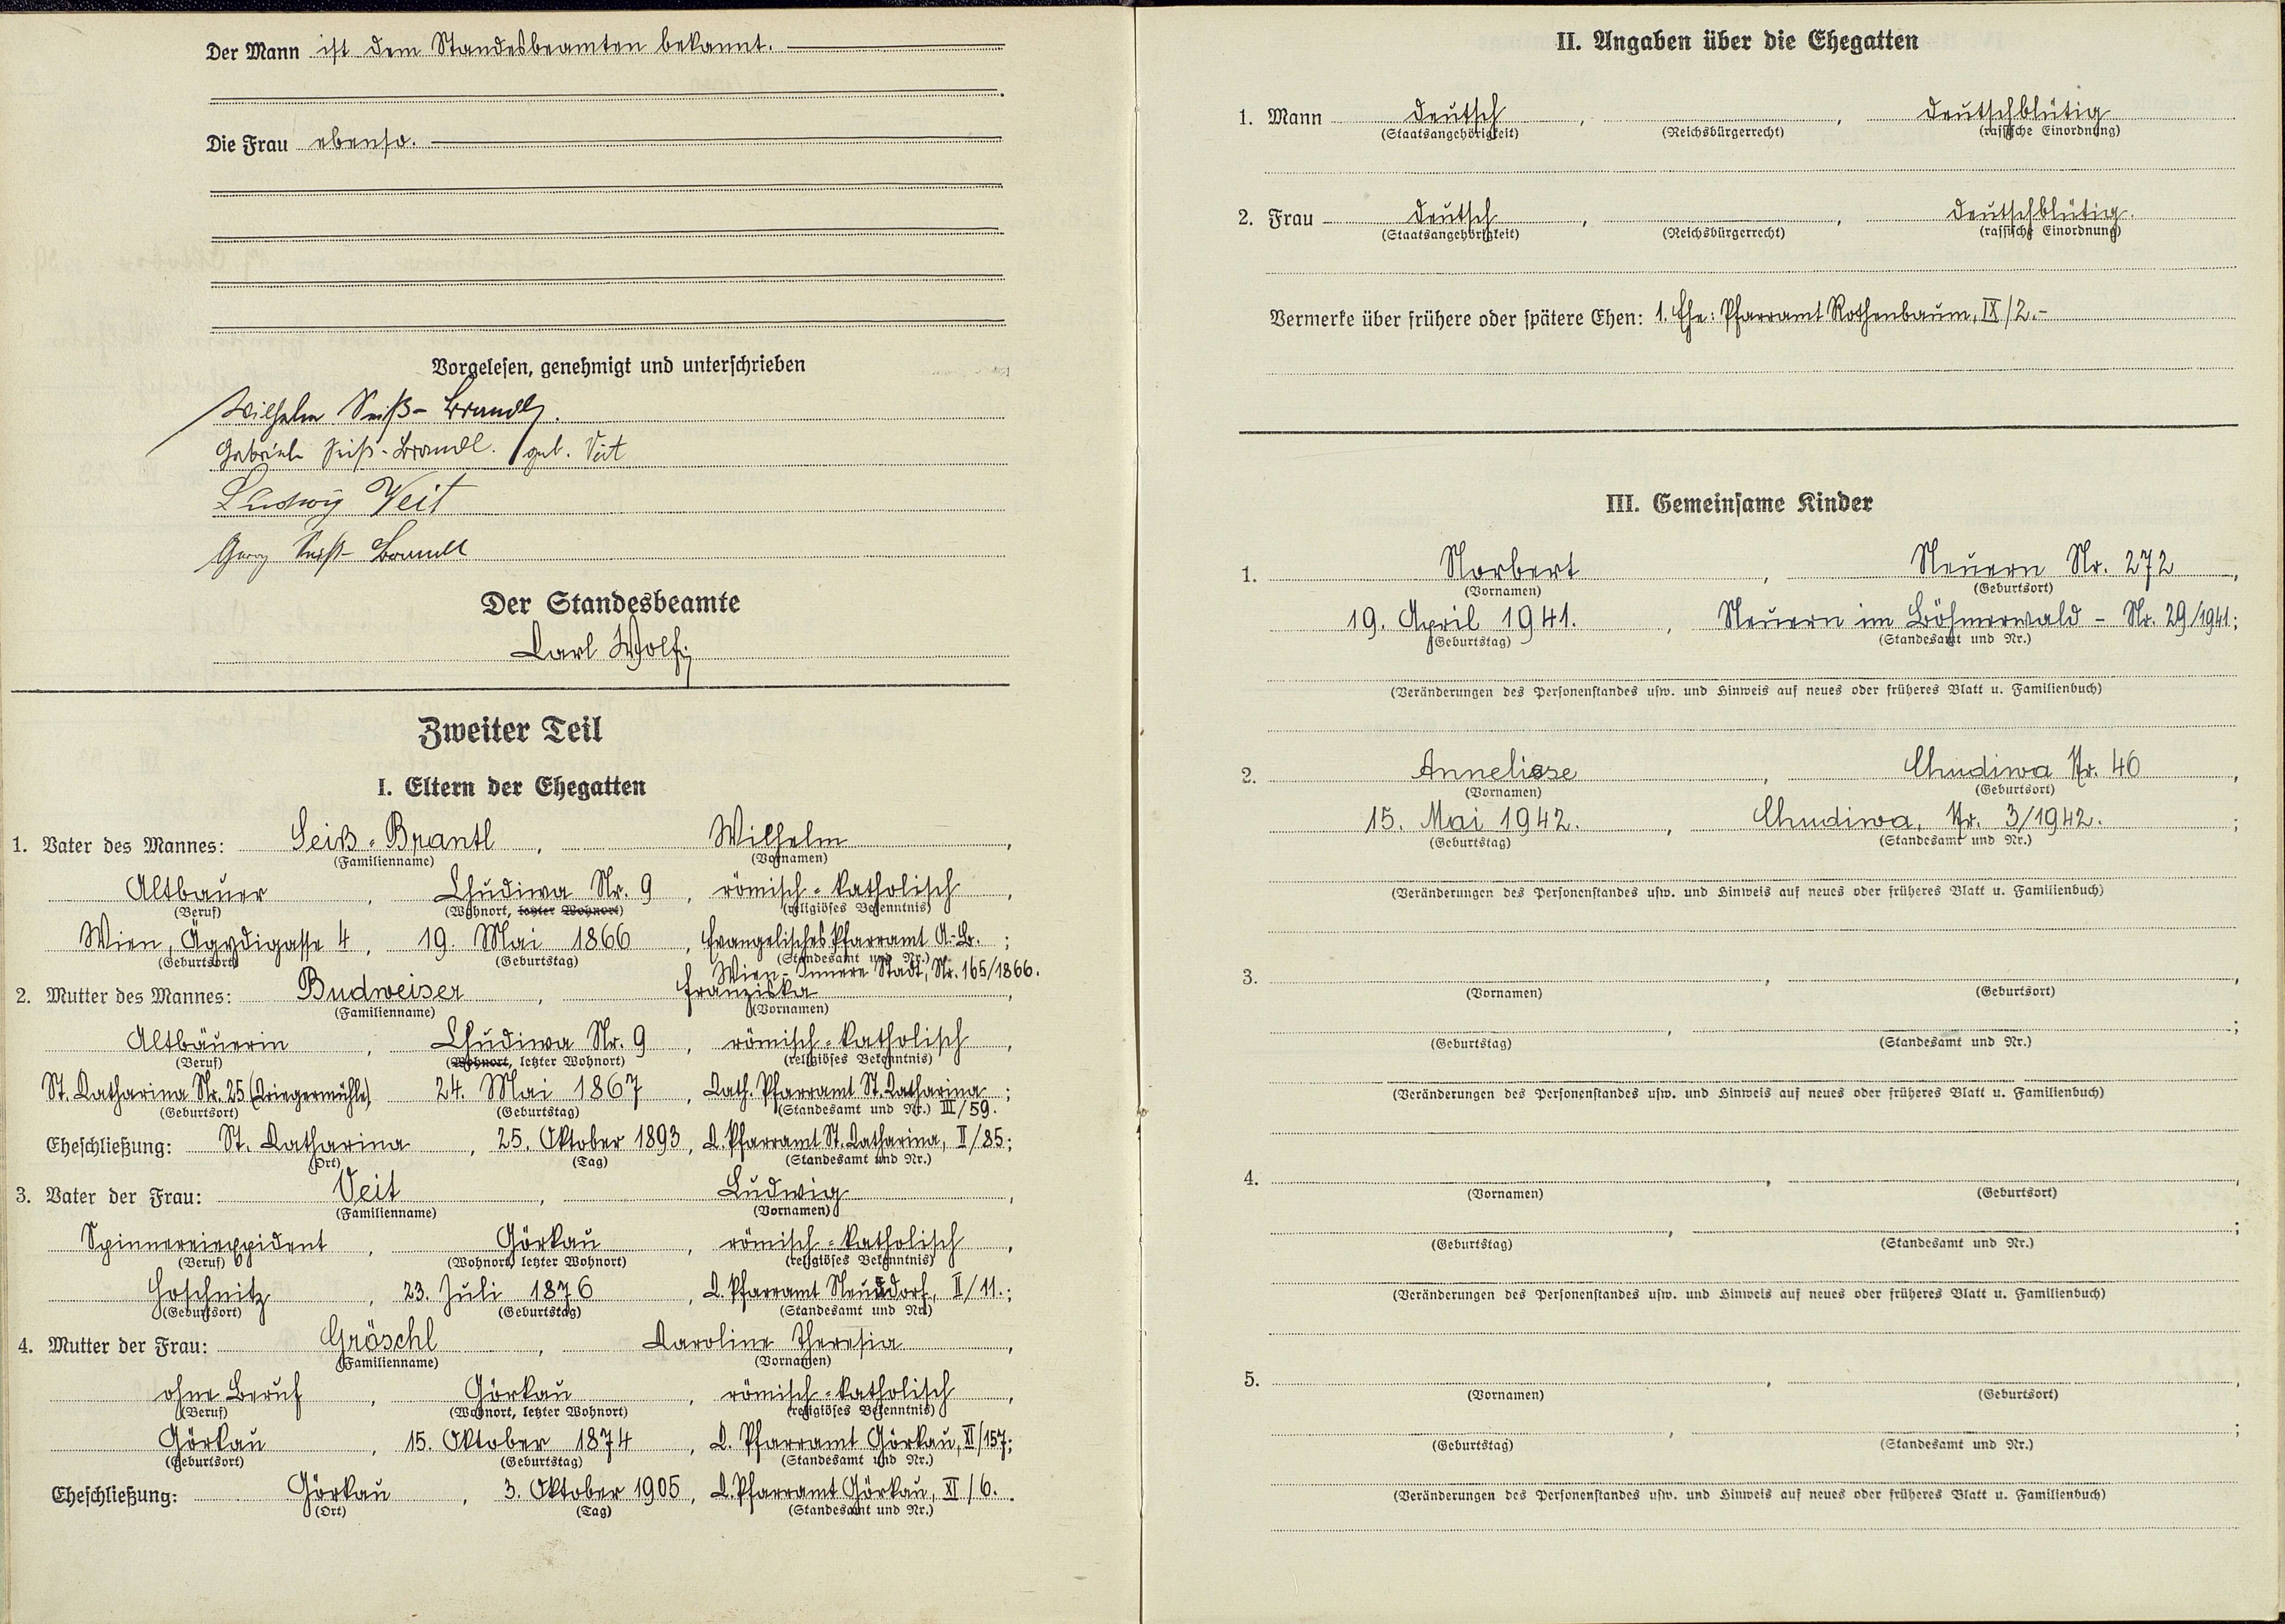 Der Mann ist dem Standesbeamten bekannt.
Die Frau ebenso.
Vorgelesen, genehmigt und unterschrieben
Wilhelm Seiß-Brandl.
Gabriele Seiß-Brandl. geb. Veit
Ludwig Veit
Georg Seiß-Brandl
Der Standesbeamte
Karl Wolf
Zweiter Teil
I. Eltern der Ehegatten
1. Vater des Mannes: Seiß-Brantl, Wilhelm,
(Familienname) (Vornamen)
Altbauer, Chudiwa Nr. 9, römisch-katholisch,
(Beruf) (Wohnort, letzter Wohnort) (religiöses Bekenntnis)
Wien, Ägydigasse 4, 19. Mai 1866, Evangelisches Pfarramt A.B.;
(Geburtsort) (Geburtstag) (Standesamt und Nr.)
Wien-Innere Stadt, Nr. 165/1866.
2. Mutter des Mannes: Budweiser, Franziska,
(Familienname) (Vornamen)
Altbäuerin, Chudiwa Nr. 9, römisch-katholisch,
(Beruf) (Wohnort, letzter Wohnort) (religiöses Bekenntnis)
St. Katharina Nr. 25 (Kriegermühle), 24. Mai 1867, Kath. Pfarramt St. Katharina;
(Geburtsort) (Geburtstag) (Standesamt und Nr.) III/59.
Eheschließung: St. Katharina, 25. Oktober 1893, K. Pfarramt St. Katharina, II/85;
(Ort) (Tag) (Standesamt und Nr.)
3. Vater der Frau: Veit, Ludwig,
(Familienname) (Vornamen)
Spinnereiexpident, Görkau, römisch-katholisch,
(Beruf) (Wohnort, letzter Wohnort) (religiöses Bekenntnis)
Hoschnitz, 23. Juli 1876, K. Pfarramt Neudorf, II/11.;
(Geburtsort) (Geburtstag) (Standesamt und Nr.)
4. Mutter der Frau: Gröschl, Karoline Theresia,
(Familienname) (Vornamen)
ohne Beruf, Görkau, römisch-katholisch,
(Beruf) (Wohnort, letzter Wohnort) (religiöses Bekenntnis)
Görkau, 15. Oktober 1874, K. Pfarramt Görkau, XI/157;
(Geburtsort) (Geburtstag) (Standesamt und Nr.)
Eheschließung: Görkau, 3. Oktober 1905, K. Pfarramt Görkau, XI/6.
(Ort) (Tag) (Standesamt und Nr.)
II. Angaben über die Ehegatten
1. Mann deutsch, , deutschblütig
(Staatsangehörigkeit) (Reichsbürgerrecht) (rassische Einordnung)
2. Frau deutsch, , deutschblütig.
(Staatsangehörigkeit) (Reichsbürgerrecht) (rassische Einordnung)
Vermerke über frühere oder spätere Ehen: 1. Ehe: Pfarramt Rothenbaum, IX/2.-
III. Gemeinsame Kinder
1. Norbert, Neuern Nr. 272,
(Vornamen) (Geburtsort)
19. April 1941., Neuern im Böhmerwald - Nr. 29/1941;
(Geburtstag) (Standesamt und Nr.)
(Veränderungen des Personenstandes usw. und Hinweis auf neues oder früheres Blatt u. Familienbuch)
2. Anneliese, Chudiwa Nr. 46,
(Vornamen) (Geburtsort)
15. Mai 1942., Chudiwa, Nr. 3/1942.;
(Geburtstag) (Standesamt und Nr.)
(Veränderungen des Personenstandes usw. und Hinweis auf neues oder früheres Blatt u. Familienbuch)
3. , ,
(Vornamen) (Geburtsort)
, ;
(Geburtstag) (Standesamt und Nr.)
(Veränderungen des Personenstandes usw. und Hinweis auf neues oder früheres Blatt u. Familienbuch)
4. , ,
(Vornamen) (Geburtsort)
, ;
(Geburtstag) (Standesamt und Nr.)
(Veränderungen des Personenstandes usw. und Hinweis auf neues oder früheres Blatt u. Familienbuch)
5. , ,
(Vornamen) (Geburtsort)
, ;
(Geburtstag) (Standesamt und Nr.)
(Veränderungen des Personenstandes usw. und Hinweis auf neues oder früheres Blatt u. Familienbuch)